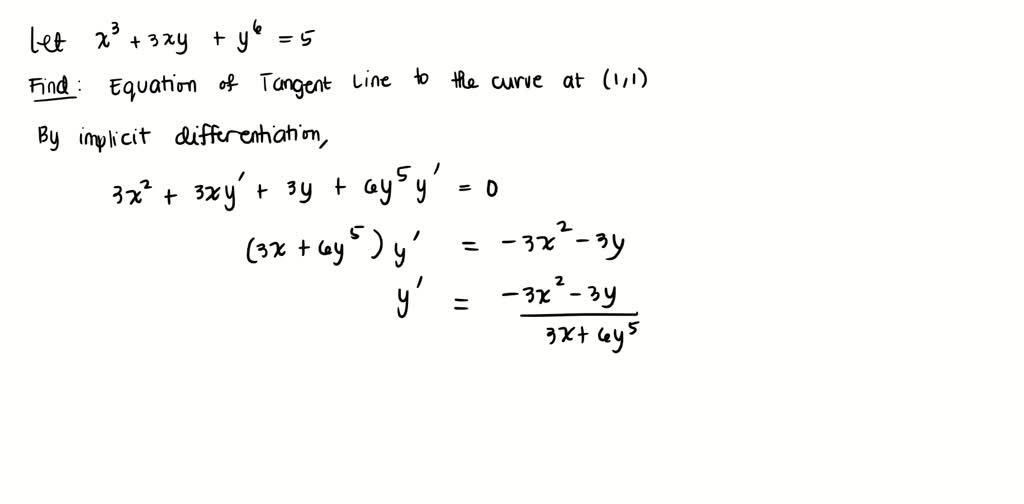 Let x³ + 3xy + y⁶ = 5
Find: Equation of Tangent Line to the curve at (1,1)
By implicit differentiation,
3x² + 3xy' + 3y + 6y⁵y' = 0
(3x + 6y⁵) y' = -3x² - 3y
y' = \frac{-3x² - 3y}{3x + 6y⁵}